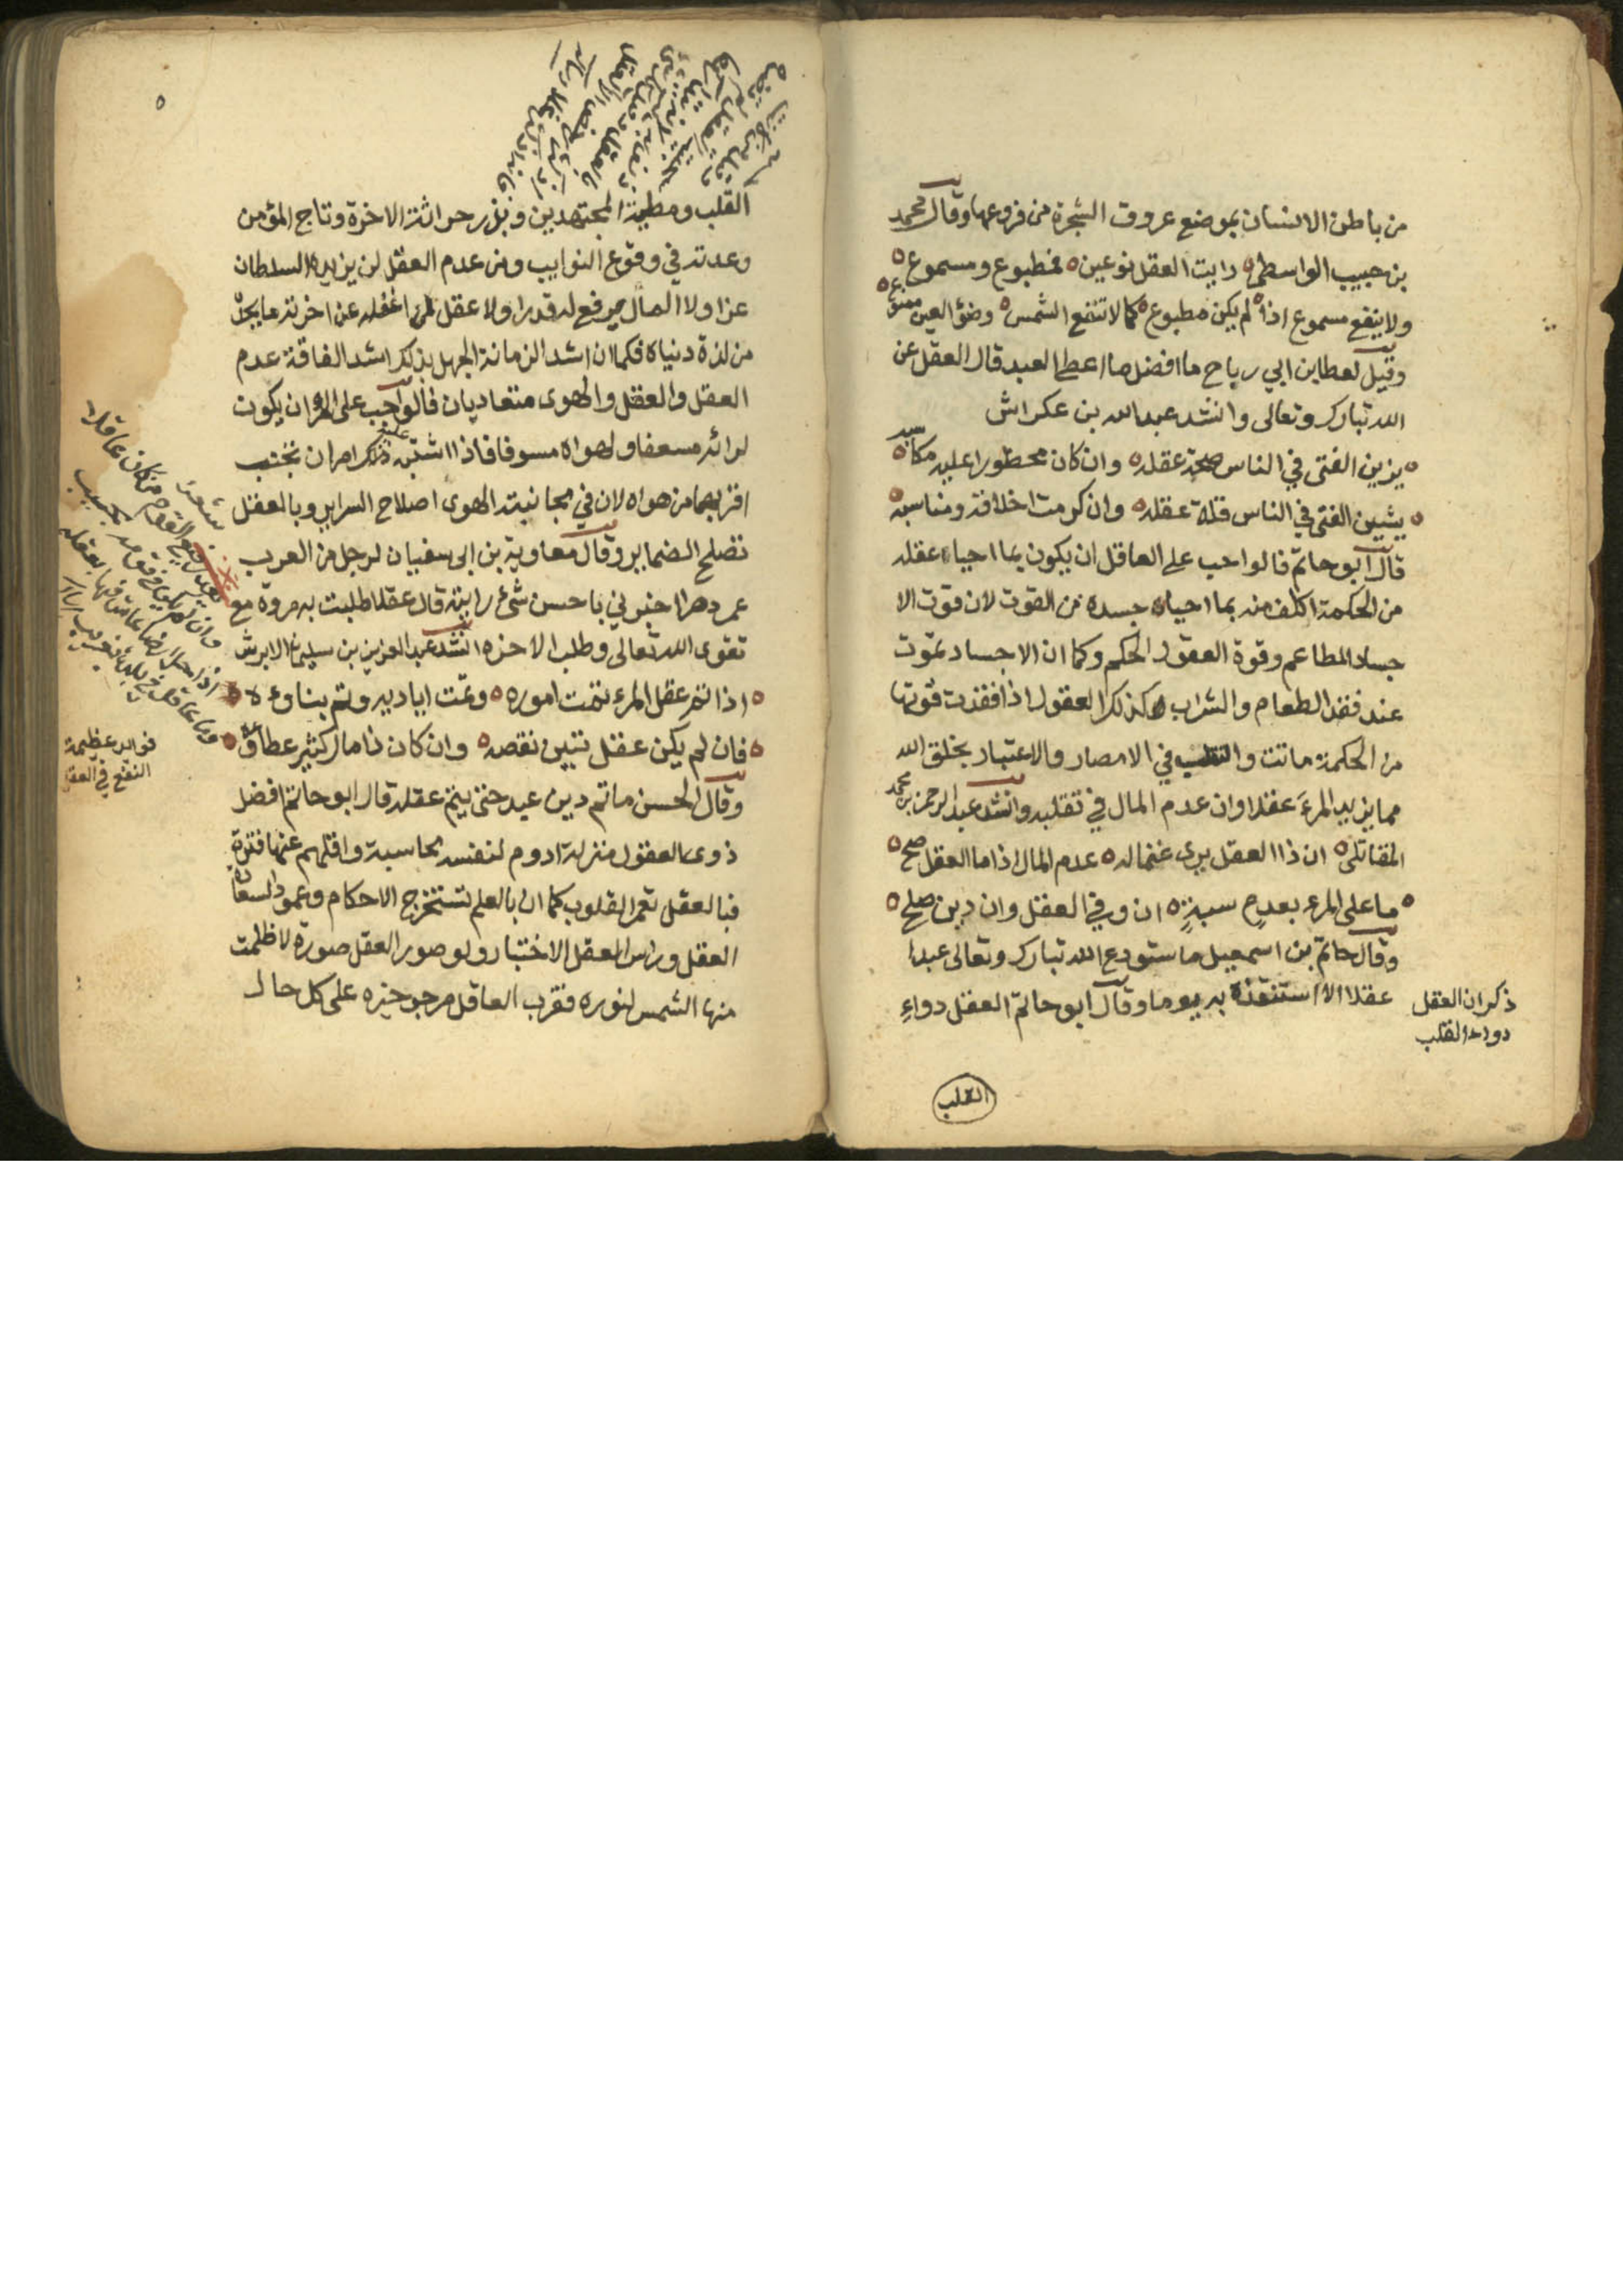 من باطن الانسان بموضع عروق الشجرة من فروعها وقال محمد
بن حبيب الواسطي رايت العقل نوعين فمطبوع ومسموع
ولا ينفع مسموع اذا لم يكن مطبوع كما لا تنفع الشمس وضؤ العين ممنوع
وقيل لعطا بن ابي رباح ما افضل ما اعطي العبد قال العقل عن
الله تبارك وتعالى وانشد عبدالله بن عكراش
يزين الفتى في الناس صحة عقله وان كان محظورا عليه مكاسبه
يشين الفتى في الناس قلة عقله وان كرمت اخلاقه ومناسبه
قال ابو حاتم فالواجب على العاقل ان يكون بما احياء عقله
من الحكمة اكلف منه بما احياء جسده من القوت لان قوت الا
جساد المطاعم وقوة العقول الحكم وكما ان الاجساد تموت
عند فقد الطعام والشراب كذلك العقول اذا فقدت قوتها
من الحكمة ماتت والتقلب في الامصار والاعتبار بخلق الله
مما يزيد المرء عقلا وان عدم المال في تقلبه وانشد عبد الرحمن بن محمد
المقاتلى ان ذا العقل يرى غنما له عدم المال اذا ما العقل صح
ما على المرء بعدم سبة ان وفي العقل وان دين صلح
وقال حاتم بن اسمعيل ما ستودع الله تبارك وتعالى عبدا
عقلا الا استنقذه به يوما وقال ابو حاتم العقل دواء
ذكر ان العقل
دواء القلب
القلب
٥
القلب ومطية المجتهدين وبزر حراثة الاخرة وتاج المؤمن
وعدته في وقوع النوايب ومن عدم العقل لن يزيده السلطان
عزا ولا المال يرفع له قدرا ولا عقل لمن اغفله عن اخرته ما يجد
من لذة دنياه فكما ان اشد الزمانة الجهل بذلك اشد الفاقة عدم
العقل والعقل والهوى متعاديان فالواجب على المرء ان يكون
لرائه مسعفا ولهواه مسوفا فاذا اشتبه عليه ذلك امران تجنب
اقربهما من هواه لان في مجانبته الهوى اصلاح السراير وبالعقل
تصلح الضماير وقال معاوية بن ابى سفيان لرجل من العرب
عمر دهرا اخبرني باحسن شئ رايته قال عقلا طلبت به مروة مع
تقوى الله تعالى وطلب الاخره انشد عبد العزيز بن سليمان الابرش
اذا تم عقل المرء تمت اموره وتمت اياديه وتم بناوءه
فان لم يكن عقل تبين نقصه وان كان ذا مال كثير عطاؤه
وقال الحسن ما تم دين عبد حتى يتم عقله قال ابو حاتم افضل
ذوى العقول منزلة ادوم لنفسه محاسبة واقلهم عنها فترة
فبالعقل تعمر القلوب كما ان بالعلم تستخرج الاحكام وعمود السعادة
العقل وراس العقل الاختبار ولو صور العقل صورة لاظلمت
منها الشمس لنوره فقرب العاقل مرجو خيره على كل حال
يعد رفيع القوم من كان عاقلا
وان لم يكن في قومه بحسيب
اذا حل ارضا عاش فيها بعقله
وما عاقل في بلدة بغريب
فوائد عظيمة
النفع في العقل